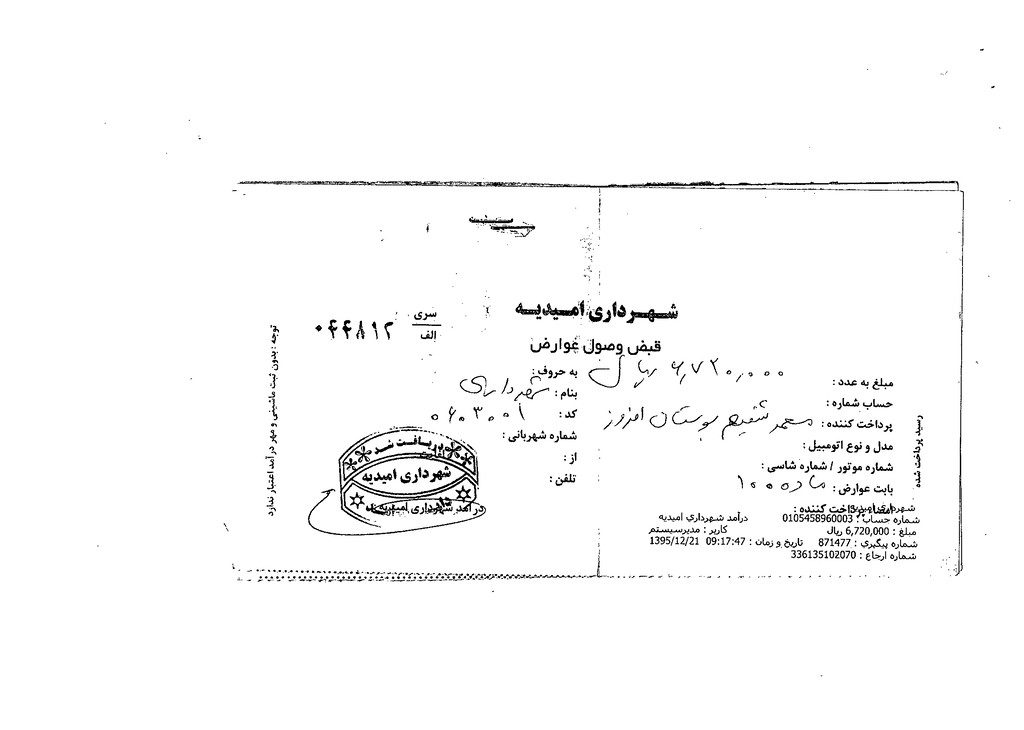 شهرداری امیدیه
سری
الف
۰۴۴۸۱۲
قبض وصول عوارض
مبلغ به عدد : ۶,۷۲۰,۰۰۰ ریال
به حروف :
حساب شماره :
بنام : شهرداری
پرداخت کننده : محمد شفیع بوستان افروز
کد : ۰۶۰۳۰۰۱
مدل و نوع اتومبیل :
شماره شهربانی :
شماره موتور / شماره شاسی :
از :
بابت عوارض : ماده ۱۰۰
تلفن :
امضاء پرداخت کننده :
شهرداری امیدیه
شماره حساب : 0105458960003 درآمد شهرداری امیدیه
مبلغ : 6,720,000 ریال کاربر : مدیرسیستم
شماره پیگیری : 871477 تاریخ و زمان : 09:17:47 1395/12/21
شماره ارجاع : 336135102070
رسید پرداخت شده
توجه : بدون ثبت ماشینی و مهر درآمد اعتبار ندارد
دریافت شد
شهرداری امیدیه
درآمد شهرداری امیدیه